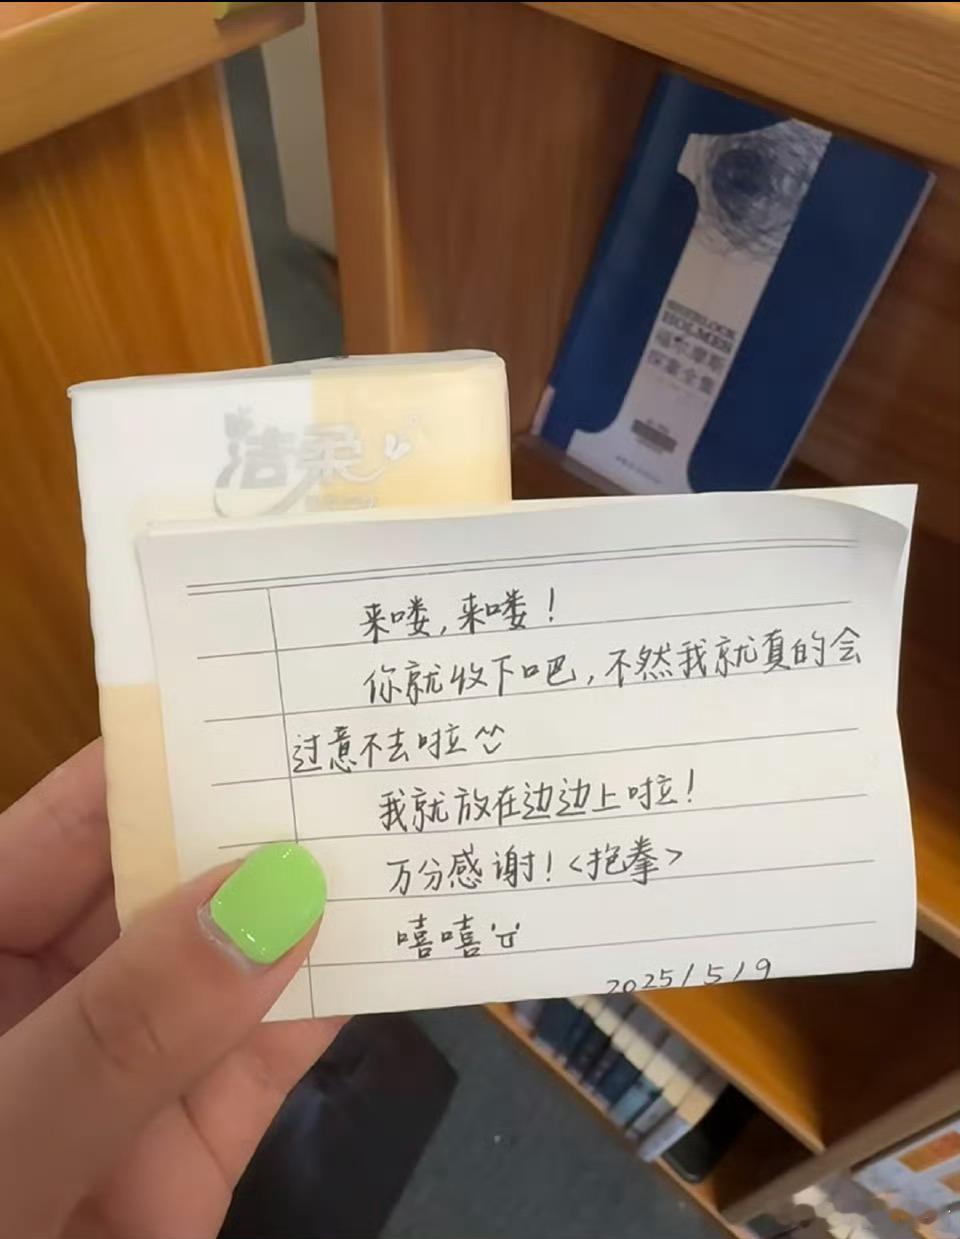 SHERLOCK
HOLMES
福尔摩斯
探案全集
洁柔
来喽,来喽!
你就收下吧,不然我就真的会
过意不去啦^^
我就放在边边上啦!
万分感谢!<抱拳>
嘻嘻
2025/5/9